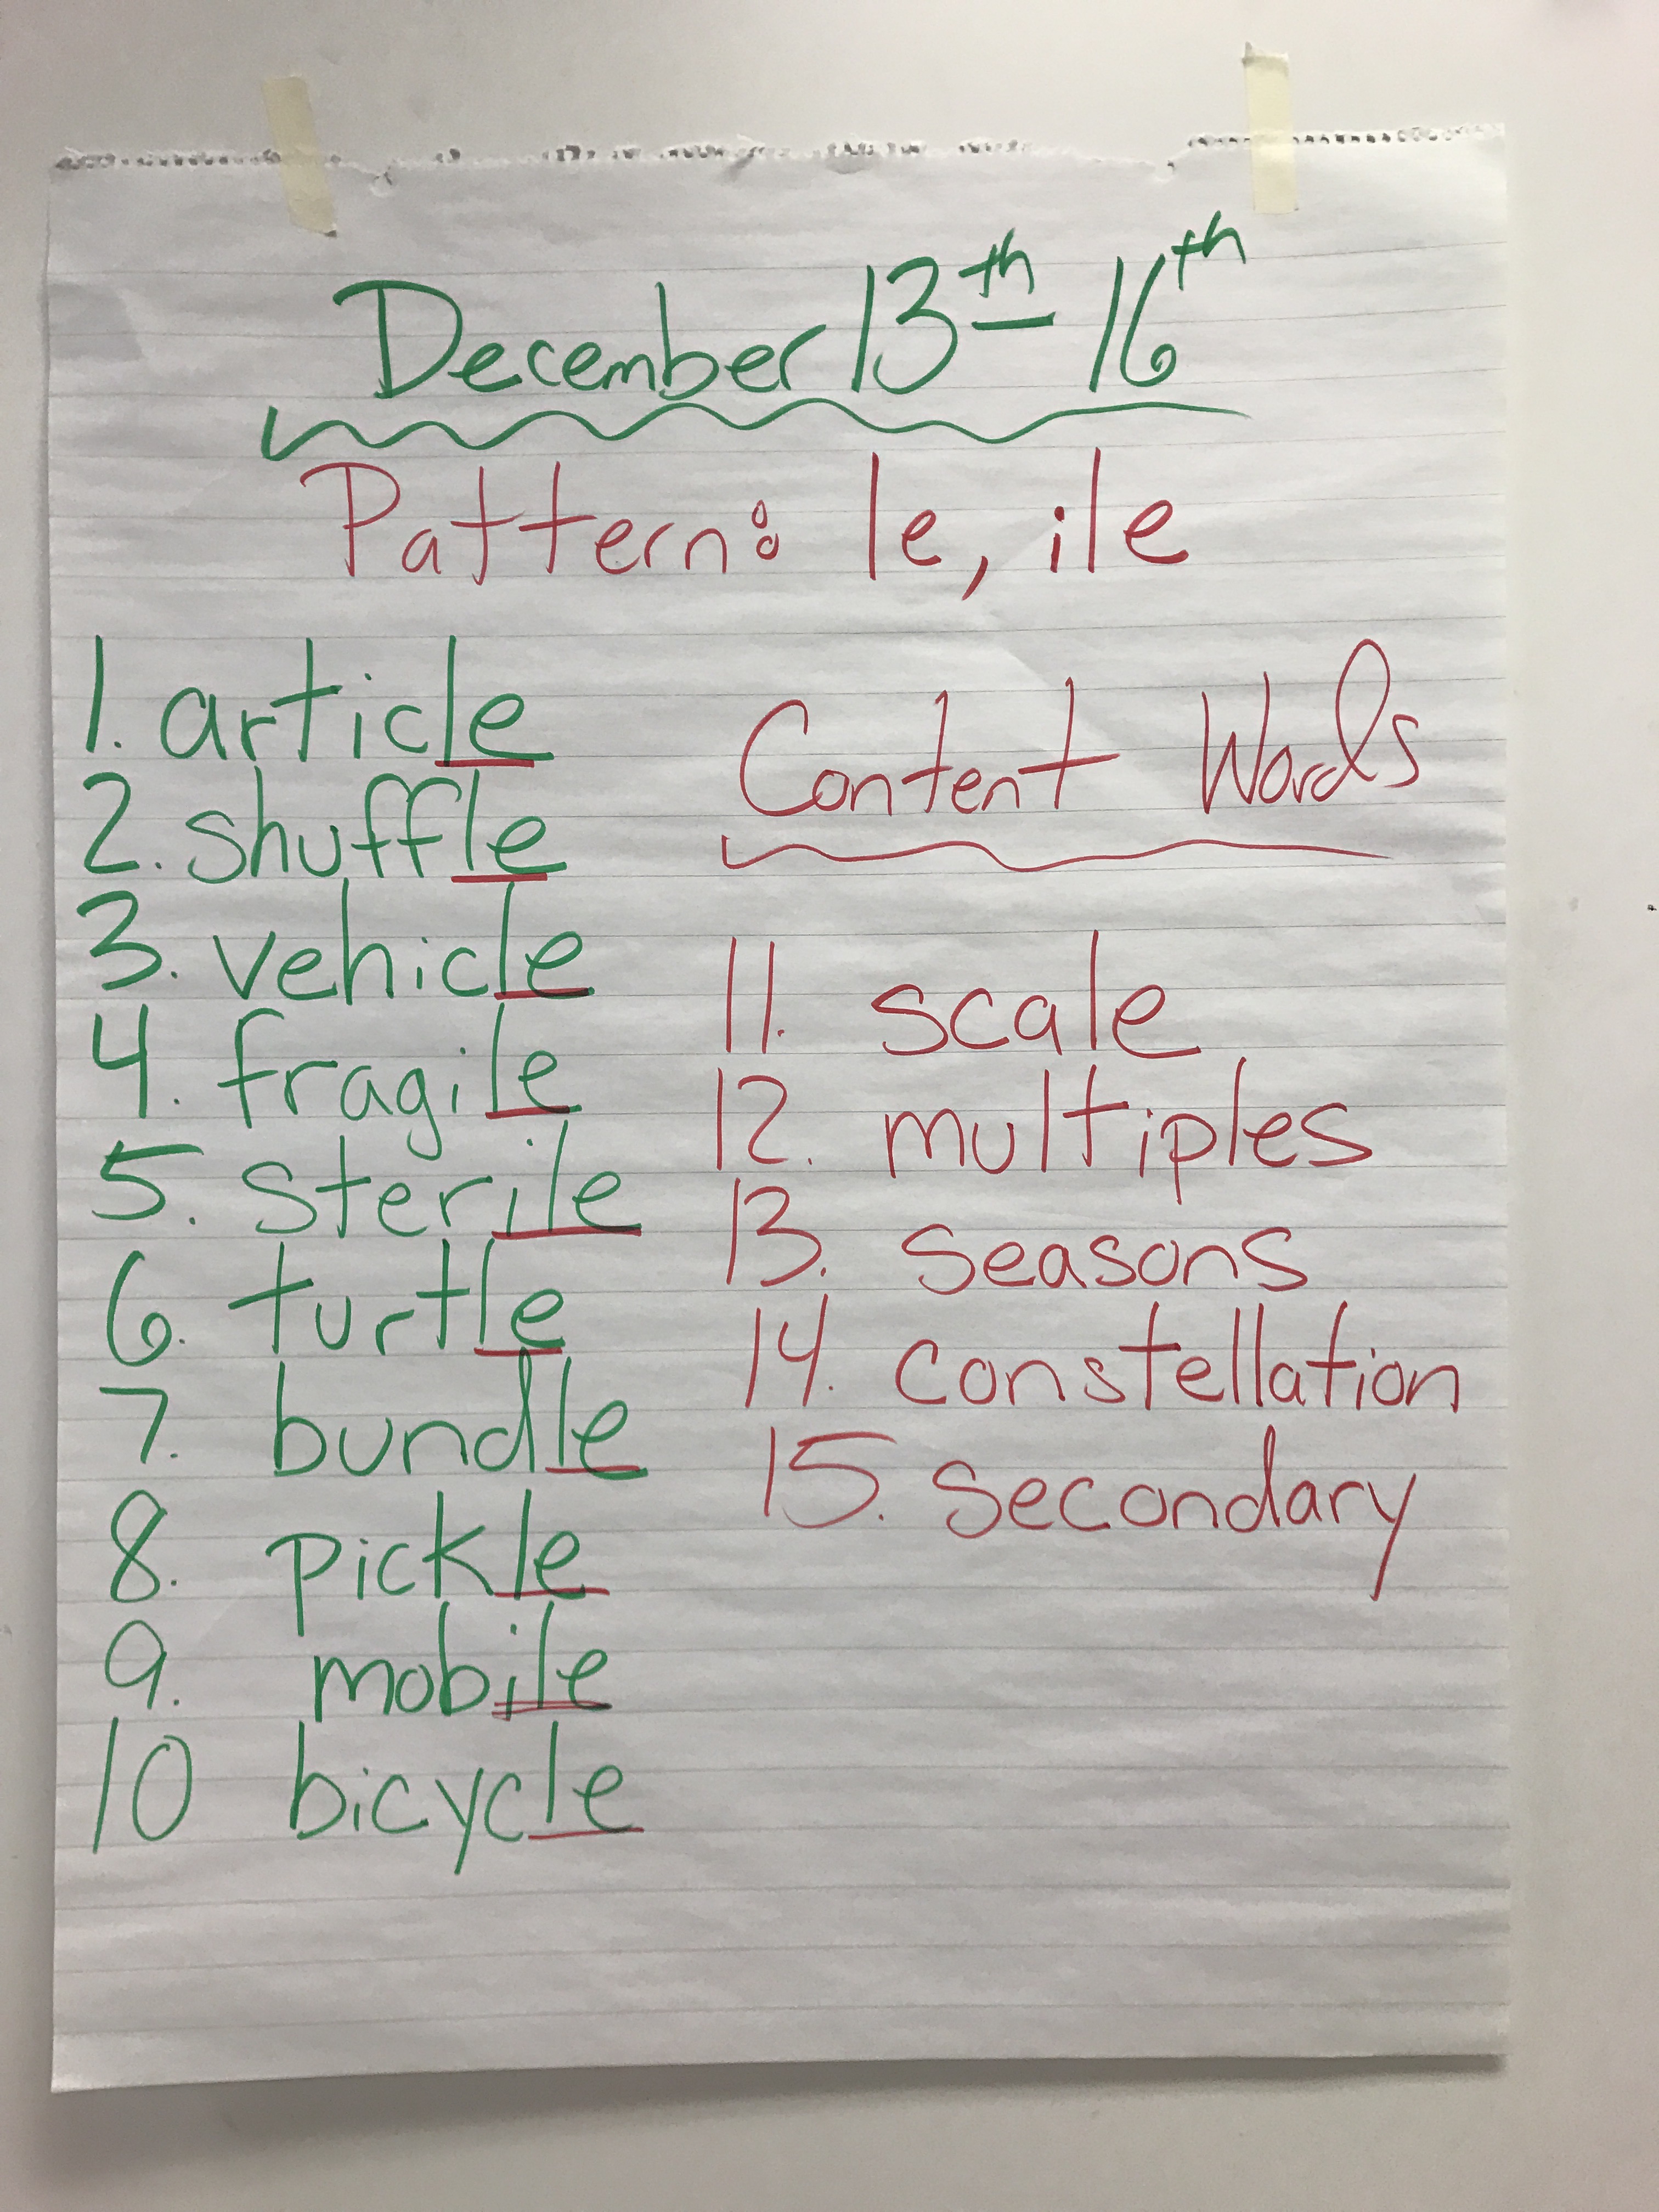 December 13th - 16th
Pattern: le, ile
1. article
2. shuffle
3. vehicle
4. fragile
5. sterile
6. turtle
7. bundle
8. pickle
9. mobile
10 bicycle
Content Words
11. scale
12. multiples
13. seasons
14. constellation
15. secondary